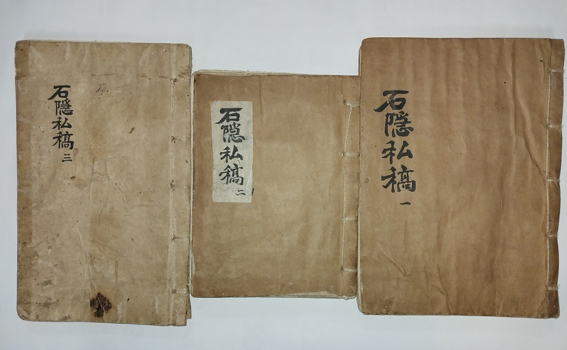 石隱私稿 一
石隱私稿 二
石隱私稿 三